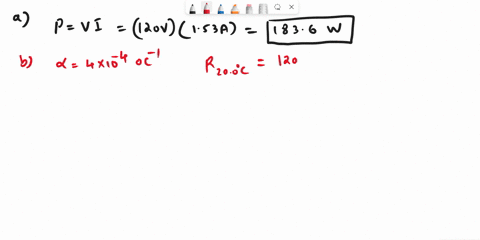 a) P = VI = (120V)(1.53A) = 183.6 W
b) α = 4×10⁻⁴ °C⁻¹ R₂₀.₀°C = 120